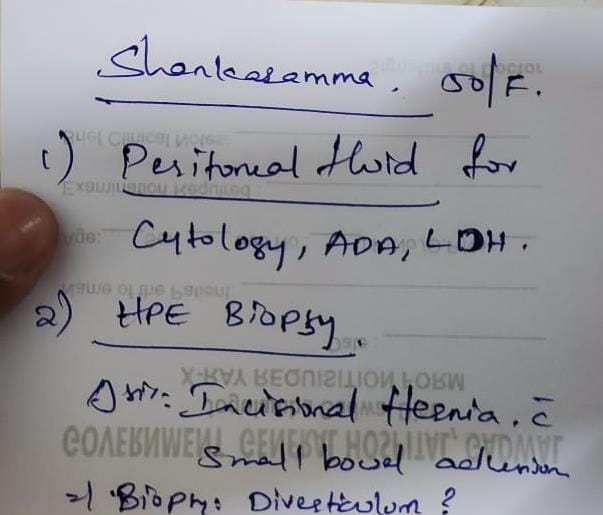 Shankaramma. 50/F.
1) Peritoneal fluid for
Cytology, ADA, LDH.
2) HPE Biopsy.
Incisional Hernia. c̄
Small bowel adhesion
Biopsy: Diverticulum?
Signature of Doctor
Brief Clinical Notes:
Examination Required:
Age:
Name of the Patient:
Date:
X-RAY REQUISITION FORM
GOVERNMENT GENERAL HOSPITAL, GADWAL